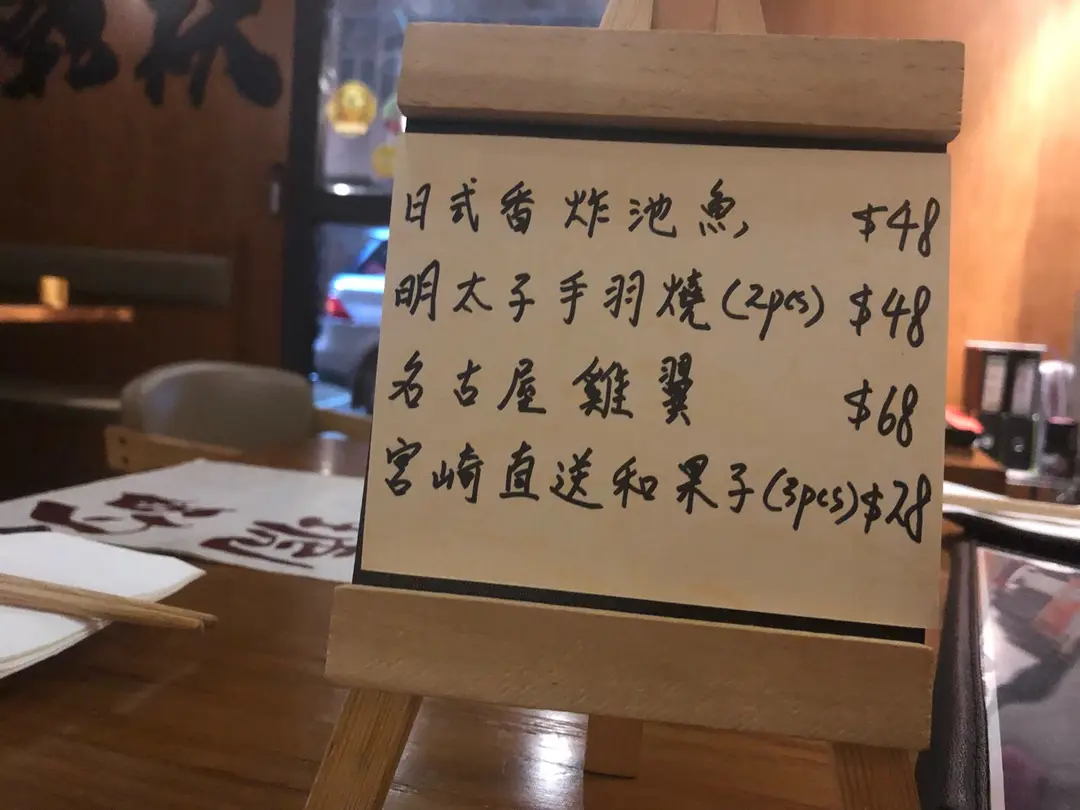 日式香炸池魚 $48
明太子手羽燒(2pcs) $48
名古屋雞翼 $68
宮崎直送和果子(3pcs) $28